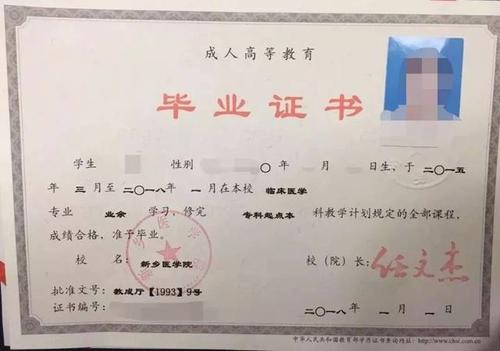 成人高等教育
毕业证书
学生 性别 〇年 月 日生，于二〇一五
年 三月至二〇一八年 一月在本校 临床医学
专业 业余 学习，修完 专科起点本 科教学计划规定的全部课程，
成绩合格，准予毕业。
校 名： 新乡医学院 校（院）长： 任文杰
批准文号： 教成厅【1993】9号
证书编号： 二〇一八年 一月 一日
中华人民共和国教育部学历证书查询网址：http://www.chsi.com.cn